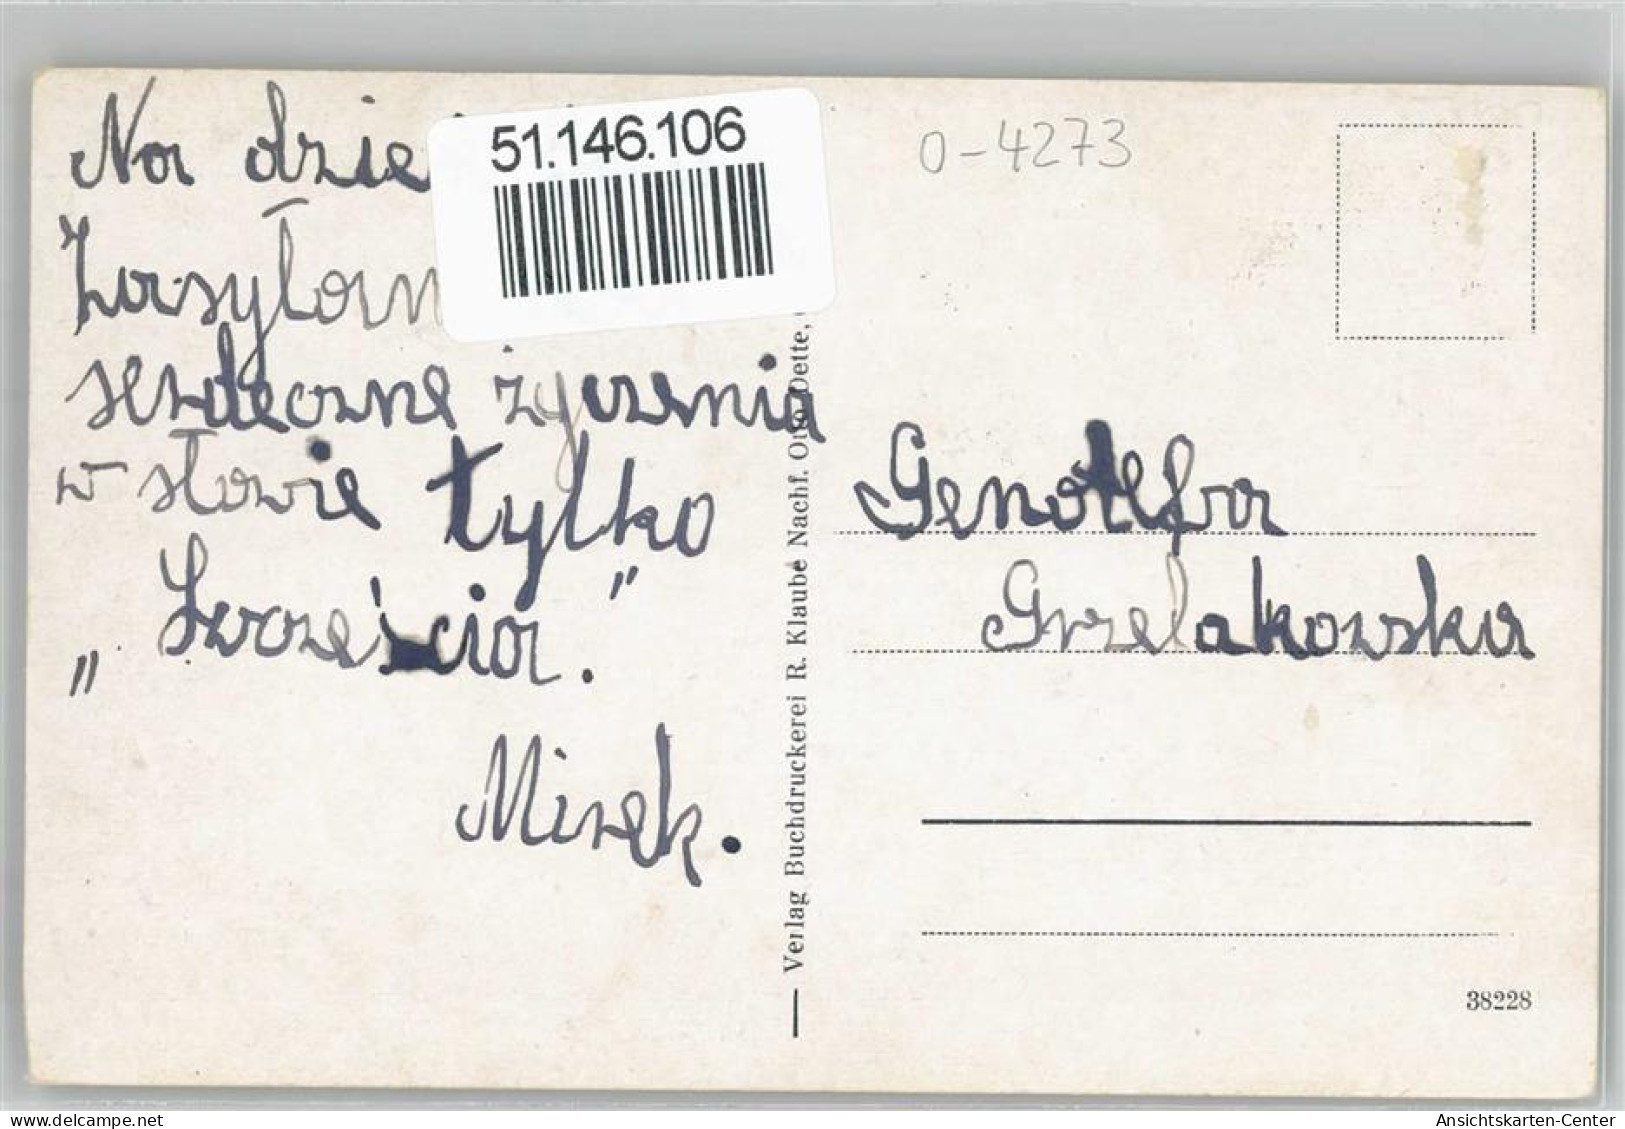 Na dzie
Zasyłam
serdeczne życzenia
w słowie tylko
„Szczęścia."
Mirek.
51.146.106
0-4273
Genowefa
Grzelakowska
Verlag Buchdruckerei R. Klaube Nachf. Otto Dette,
38228
Ansichtskarten-Center
delcampe.net